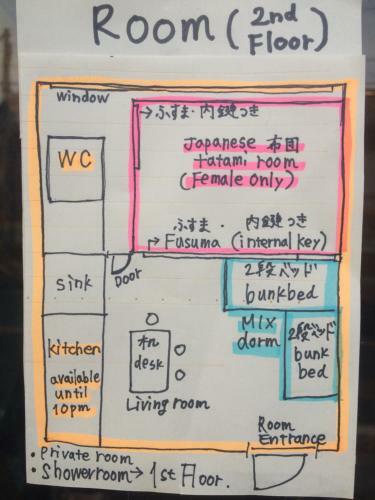 Room (2nd Floor)
window
→ふすま・内鍵つき
WC
Japanese 布団
tatami room
(Female only)
ふすま・内鍵つき
→Fusuma (internal key)
Door
sink
2段ベッド
bunkbed
Mix
dorm
2段ベッド
bunk
bed
kitchen
available
until
10pm
机
desk
Living room
Room
Entrance
・private room
・showerroom→1st Floor.